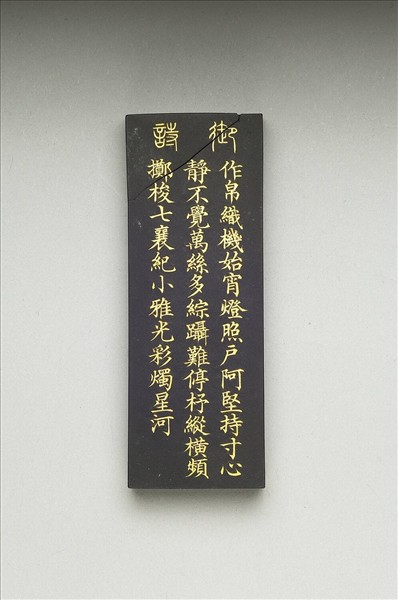 御
詩
作帛織機始宵燈照戶阿堅持寸心
靜不覺萬絲多綜躡難停杼縱橫頻
擲梭七襄紀小雅光彩燭星河